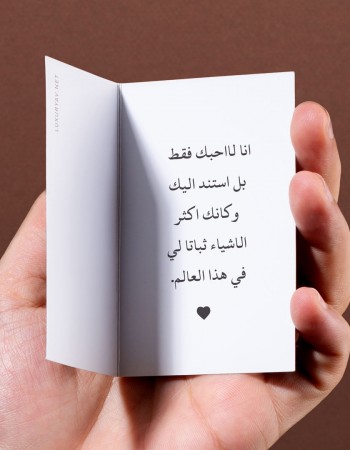 LUXURYBY.NET
انا لااحبك فقط
بل استند اليك
وكانك اكثر
الاشياء ثباتا لي
في هذا العالم.